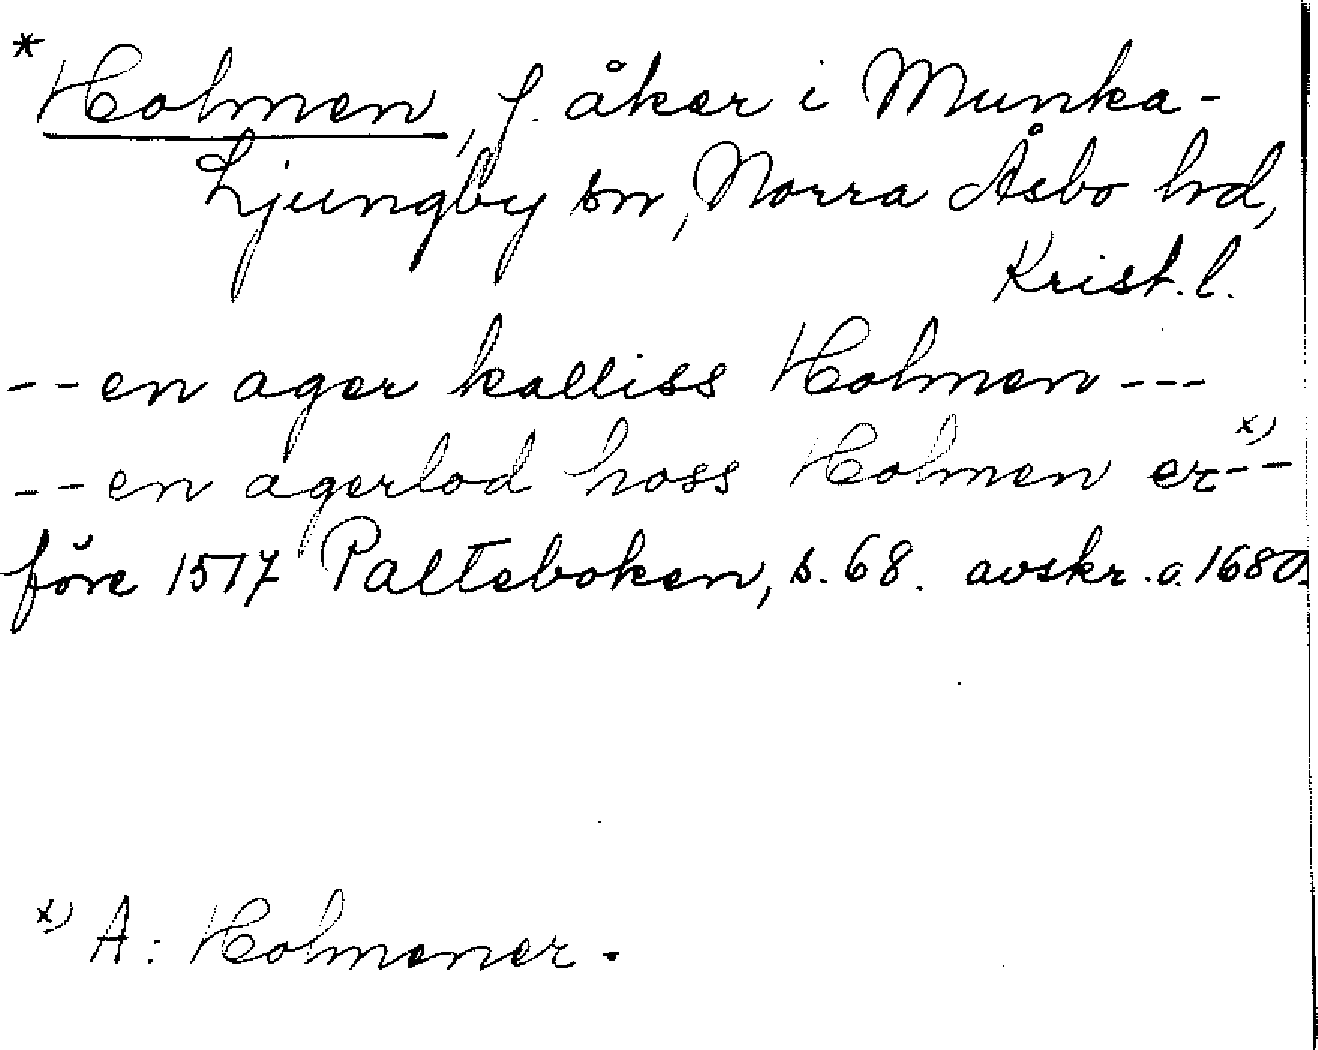 * Holmen, f. åker i Munka-
Ljungby sn, Norra Åsbo hd,
Krist. l.
-- en ager kalliss Holmen ---
-- en agerlod hoss Holmen er x) --
före 1517 Palteboken, s. 68. avskr. o. 1680.
x) A: Holmener.